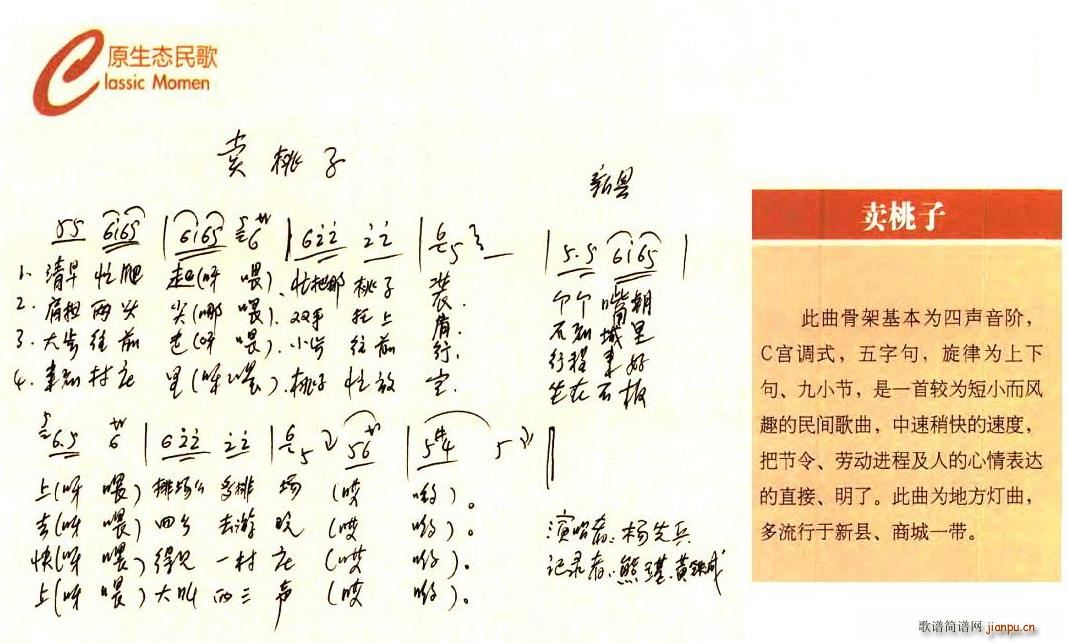 原生态民歌
Classic Momen
卖桃子
新县
55 6165 6165 6 622 22 5 5.5 6165
1. 清早 忙爬 起(呀 喂). 忙把那 桃子 装. 个个 嘴朝
2. 肩担 两头 尖(哪 喂). 双手 托上 肩. 去到 城里
3. 大步 往前 走(呀 喂). 小步 往前 行. 行程 来好
4. 来到 村庄 里(呀 喂). 桃子 忙放 定. 坐在 石板
6.5 6 622 22 5 56 5 #4 5
上(呀 喂) 排场 场 (哎 哟)。
去(呀 喂) 四乡 去游 玩 (哎 哟)。
快(呀 喂) 得见 一村 庄 (哎 哟)。
上(呀 喂) 大叫 两三 声 (哎 哟)。
演唱者: 杨先兵
记录者: 熊
卖桃子
此曲骨架基本为四声音阶，
C宫调式，五字句，旋律为上下
句、九小节，是一首较为短小而风
趣的民间歌曲，中速稍快的速度，
把节令、劳动进程及人的心情表达
的直接、明了。此曲为地方灯曲，
多流行于新县、商城一带。
歌谱简谱网 jianpu.cn